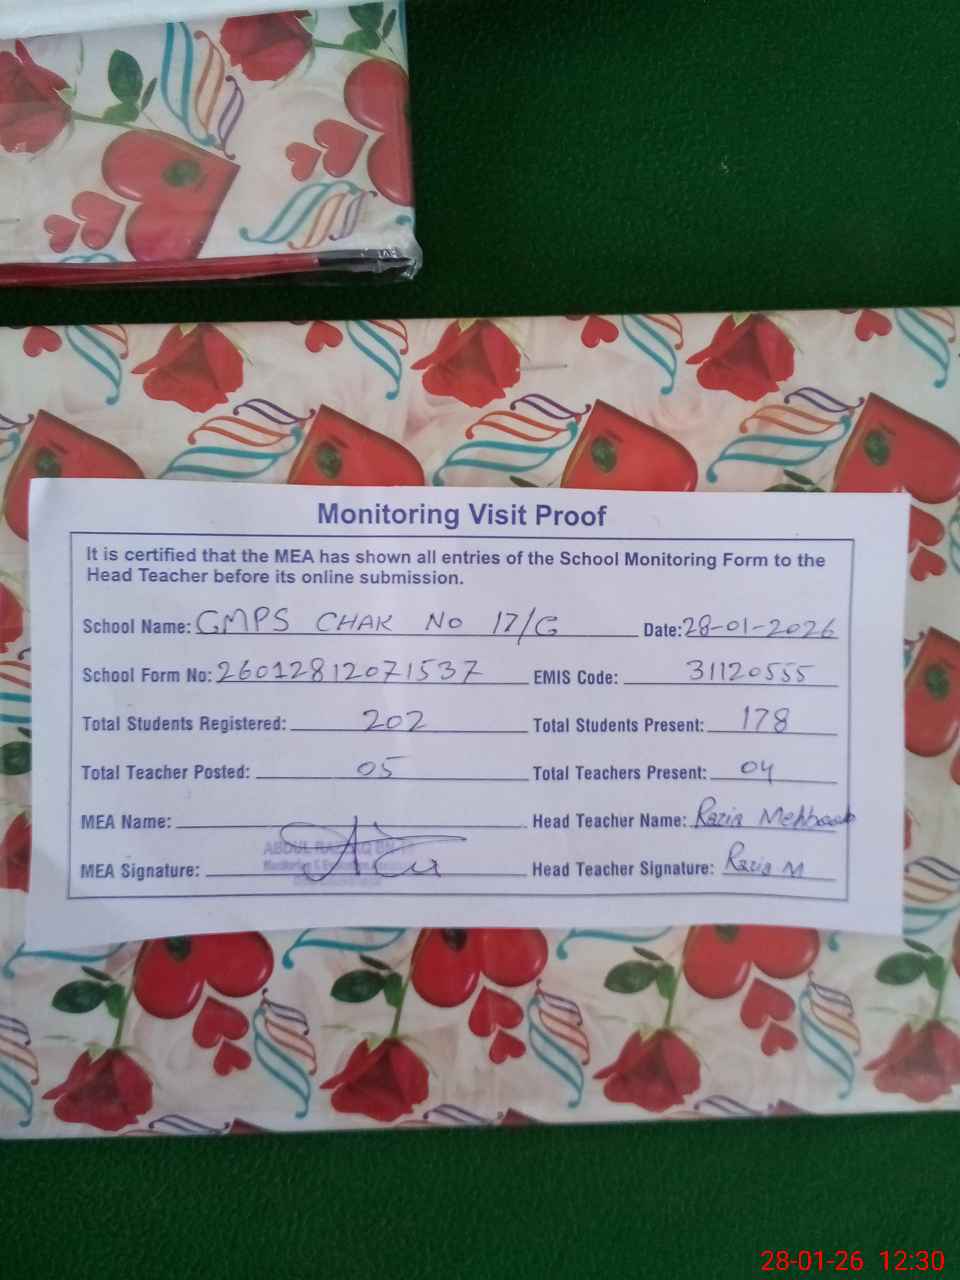 Monitoring Visit Proof
It is certified that the MEA has shown all entries of the School Monitoring Form to the
Head Teacher before its online submission.
School Name: GMPS CHAK No 17/G Date: 28-01-2026
School Form No: 26012812071537 EMIS Code: 31120555
Total Students Registered: 202 Total Students Present: 178
Total Teacher Posted: 05 Total Teachers Present: 04
MEA Name: Head Teacher Name: Razia Mehboob
ABDUL
MEA Signature: Head Teacher Signature: Razia M
28-01-26 12:30